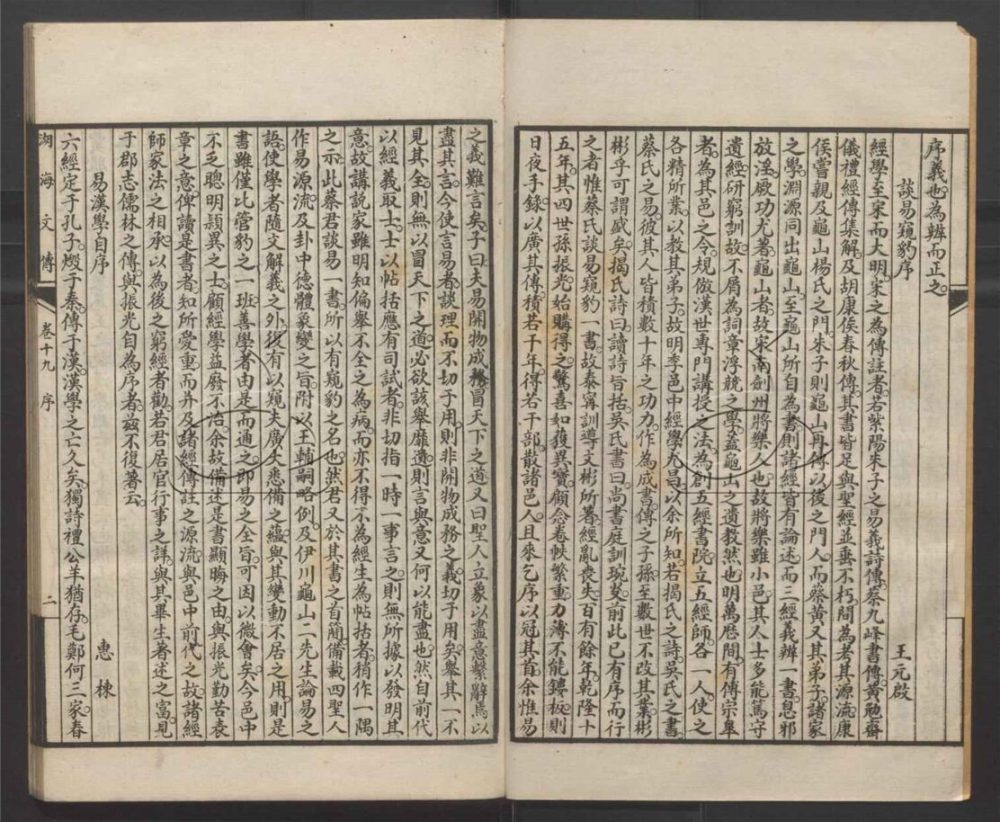 序義也為辨而正之
談易窺豹序
王元啟
經學至宋而大明宋之為傳註者若紫陽朱子之易義詩傳蔡九峰書傳黃勉齋
儀禮經傳集解及胡康侯春秋傳其書皆足與聖經並垂不朽間為考其源流康
侯嘗親及龜山楊氏之門朱子則龜山再傳以後之門人而蔡黃又其弟子諸家
之學淵源同出龜山至龜山所自為書則諸經皆有論述而三經義辨一書息邪
放淫厥功尤著龜山者故宋南劍州將樂人也故將樂雖小邑其人士多能篤守
遺經研窮訓故不屑為詞章浮競之學蓋龜山之遺教然也明萬曆間有傳宗皋
者為其邑之令規倣漢世專門講授之法為創五經書院立五經師各一人使之
各精所業以教其弟子故明季邑中經學尤昌以余所知若揭氏之詩吳氏之書
蔡氏之易彼其人皆積數十年之功力作為成書傳之子孫至數世不改其業彬
彬乎可謂盛矣揭氏詩曰讀詩旨括吳氏書曰尚書庭訓琬炎前此已有序而行
之者惟蔡氏談易窺豹一書故泰寧訓導文彬所著經亂喪失百有餘年乾隆十
五年其四世孫振光始購得之驚喜如獲異寶顧念卷帙繁重力薄不能鏤板則
日夜手錄以廣其傳積若干年得若干部散諸邑人且來乞序以冠其首余惟易
之義難言矣子曰夫易開物成務冒天下之道又曰聖人立象以盡意繫辭焉以
盡其言今使言易者談理而不切于用則非開物成務之義切于用矣舉其一不
見其全則無以冒天下之道必欲該舉靡遺則言與意又何以能盡也然自前代
以經義取士士以帖括應有司試者非切指一時一事言之則無所據以發明其
意故講說家雖明知偏舉不全之為病而亦不得不為經生為帖括者稍作一隅
之示此蔡君談易一書所以有窺豹之名也然君又於其書之首簡備載四聖人
作易源流及卦中德體象變之旨附以王輔嗣略例及伊川龜山二先生論易之
語使學者隨文解義之外復有以窺夫廣大悉備之蘊與其變動不居之用則是
書雖僅比管豹之一班善學者由是而通之即易之全旨可因以微會矣今邑中
不乏聰明頴異之士顧經學益廢不治余故備述是書顯晦之由與振光勤苦表
章之意俾讀是書者知所愛重而并及諸經傳註之源流與邑中前代之故諸經
師家法之相承以為後之窮經者勸若君居官行事之詳與其畢生著述之富見
于郡志儒林之傳與振光自為序者茲不復著云
易漢學自序
惠棟
六經定于孔子燬于秦傳于漢漢學之亡久矣獨詩禮公羊猶存毛鄭何三家春
湖海文傳 卷十九 序 二